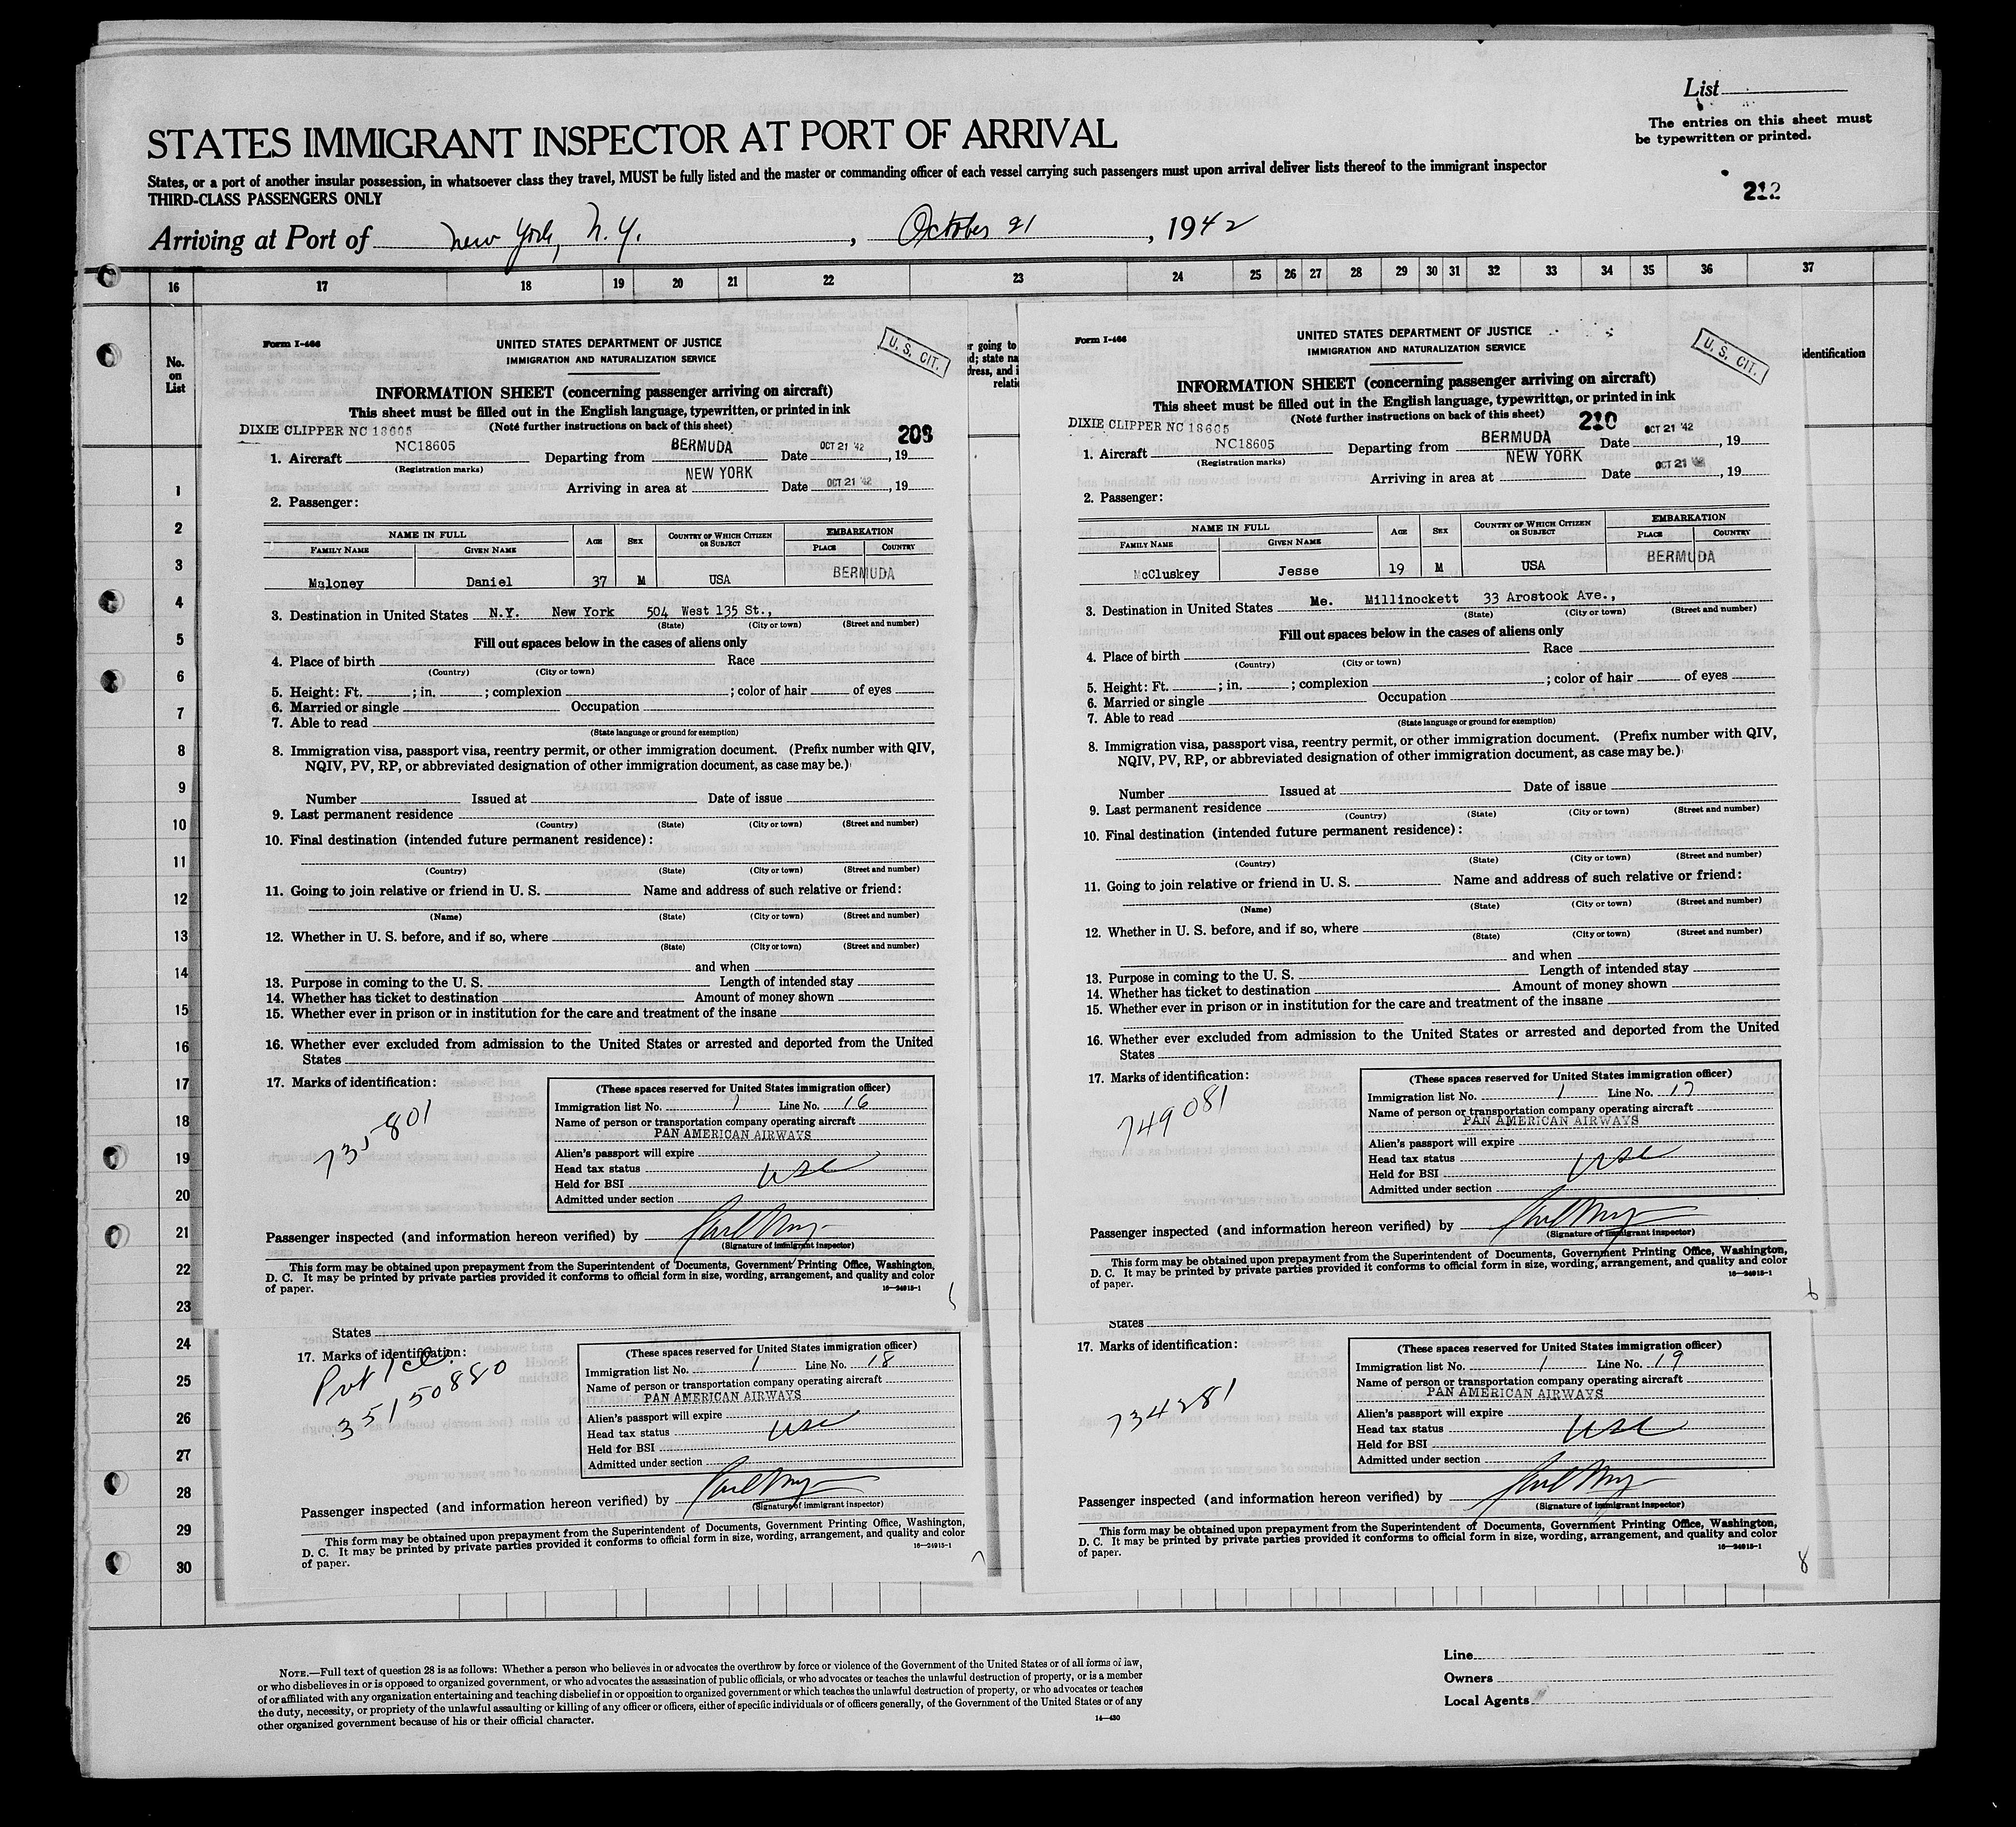 List
The entries on this sheet must
be typewritten or printed.
STATES IMMIGRANT INSPECTOR AT PORT OF ARRIVAL
States, or a port of another insular possession, in whatsoever class they travel, MUST be fully listed and the master or commanding officer of each vessel carrying such passengers must upon arrival deliver lists thereof to the immigrant inspector
THIRD-CLASS PASSENGERS ONLY
212
Arriving at Port of New York, N.Y. , October 21 , 1942
16 17 18 19 20 21 22 23 24 25 26 27 28 29 30 31 32 33 34 35 36 37
No.
on
List
1
2
3
4
5
6
7
8
9
10
11
12
13
14
15
16
17
18
19
20
21
22
23
24
25
26
27
28
29
30
Form I-466
UNITED STATES DEPARTMENT OF JUSTICE
IMMIGRATION AND NATURALIZATION SERVICE
U. S. CIT.
INFORMATION SHEET (concerning passenger arriving on aircraft)
This sheet must be filled out in the English language, typewritten, or printed in ink
(Note further instructions on back of this sheet)
DIXIE CLIPPER NC 18605
209
1. Aircraft NC18605 Departing from BERMUDA Date OCT 21 '42 , 19
(Registration marks)
Arriving in area at NEW YORK Date OCT 21 '42 , 19
2. Passenger:
NAME IN FULL AGE SEX COUNTRY OF WHICH CITIZEN OR SUBJECT EMBARKATION
FAMILY NAME GIVEN NAME PLACE COUNTRY
Maloney Daniel 37 M USA BERMUDA
3. Destination in United States N.Y. New York 504 West 135 St.,
(State) (City or town) (Street and number)
Fill out spaces below in the cases of aliens only
4. Place of birth Race
(Country) (City or town)
5. Height: Ft. ; in. ; complexion ; color of hair of eyes
6. Married or single Occupation
7. Able to read
(State language or ground for exemption)
8. Immigration visa, passport visa, reentry permit, or other immigration document. (Prefix number with QIV,
NQIV, PV, RP, or abbreviated designation of other immigration document, as case may be.)
Number Issued at Date of issue
9. Last permanent residence
(Country) (State) (City or town) (Street and number)
10. Final destination (intended future permanent residence):
(Country) (State) (City or town) (Street and number)
11. Going to join relative or friend in U. S. Name and address of such relative or friend:
(Name) (State) (City or town) (Street and number)
12. Whether in U. S. before, and if so, where
(State) (City or town) (Street and number)
and when
13. Purpose in coming to the U. S. Length of intended stay
14. Whether has ticket to destination Amount of money shown
15. Whether ever in prison or in institution for the care and treatment of the insane
16. Whether ever excluded from admission to the United States or arrested and deported from the United
States
17. Marks of identification:
735801
(These spaces reserved for United States immigration officer)
Immigration list No. 1 Line No. 16
Name of person or transportation company operating aircraft
PAN AMERICAN AIRWAYS
Alien's passport will expire
Head tax status USC
Held for BSI
Admitted under section
Passenger inspected (and information hereon verified) by
(Signature of immigrant inspector)
This form may be obtained upon prepayment from the Superintendent of Documents, Government Printing Office, Washington,
D. C. It may be printed by private parties provided it conforms to official form in size, wording, arrangement, and quality and color
of paper.
16—24915-1
r going to
d; state na
dress, and i
relatic
Form I-466
UNITED STATES DEPARTMENT OF JUSTICE
IMMIGRATION AND NATURALIZATION SERVICE
U. S. CIT.
identification
INFORMATION SHEET (concerning passenger arriving on aircraft)
This sheet must be filled out in the English language, typewritten, or printed in ink
(Note further instructions on back of this sheet)
DIXIE CLIPPER NC 18605
210
1. Aircraft NC18605 Departing from BERMUDA Date OCT 21 '42 , 19
(Registration marks)
Arriving in area at NEW YORK Date OCT 21 '42 , 19
2. Passenger:
NAME IN FULL AGE SEX COUNTRY OF WHICH CITIZEN OR SUBJECT EMBARKATION
FAMILY NAME GIVEN NAME PLACE COUNTRY
McCluskey Jesse 19 M USA BERMUDA
3. Destination in United States Me. Millinockett 33 Arostook Ave.,
(State) (City or town) (Street and number)
Fill out spaces below in the cases of aliens only
4. Place of birth Race
(Country) (City or town)
5. Height: Ft. ; in. ; complexion ; color of hair of eyes
6. Married or single Occupation
7. Able to read
(State language or ground for exemption)
8. Immigration visa, passport visa, reentry permit, or other immigration document. (Prefix number with QIV,
NQIV, PV, RP, or abbreviated designation of other immigration document, as case may be.)
Number Issued at Date of issue
9. Last permanent residence
(Country) (State) (City or town) (Street and number)
10. Final destination (intended future permanent residence):
(Country) (State) (City or town) (Street and number)
11. Going to join relative or friend in U. S. Name and address of such relative or friend:
(Name) (State) (City or town) (Street and number)
12. Whether in U. S. before, and if so, where
(State) (City or town) (Street and number)
and when
13. Purpose in coming to the U. S. Length of intended stay
14. Whether has ticket to destination Amount of money shown
15. Whether ever in prison or in institution for the care and treatment of the insane
16. Whether ever excluded from admission to the United States or arrested and deported from the United
States
17. Marks of identification:
749081
(These spaces reserved for United States immigration officer)
Immigration list No. 1 Line No. 17
Name of person or transportation company operating aircraft
PAN AMERICAN AIRWAYS
Alien's passport will expire
Head tax status USC
Held for BSI
Admitted under section
Passenger inspected (and information hereon verified) by
(Signature of immigrant inspector)
This form may be obtained upon prepayment from the Superintendent of Documents, Government Printing Office, Washington,
D. C. It may be printed by private parties provided it conforms to official form in size, wording, arrangement, and quality and color
of paper.
16—24915-1
6
States
17. Marks of identification:
Pvt 1cl.
35150880
(These spaces reserved for United States immigration officer)
Immigration list No. 1 Line No. 18
Name of person or transportation company operating aircraft
PAN AMERICAN AIRWAYS
Alien's passport will expire
Head tax status USC
Held for BSI
Admitted under section
Passenger inspected (and information hereon verified) by
(Signature of immigrant inspector)
This form may be obtained upon prepayment from the Superintendent of Documents, Government Printing Office, Washington,
D. C. It may be printed by private parties provided it conforms to official form in size, wording, arrangement, and quality and color
of paper.
16—24915-1
7
States
17. Marks of identification:
734281
(These spaces reserved for United States immigration officer)
Immigration list No. 1 Line No. 19
Name of person or transportation company operating aircraft
PAN AMERICAN AIRWAYS
Alien's passport will expire
Head tax status USC
Held for BSI
Admitted under section
Passenger inspected (and information hereon verified) by
(Signature of immigrant inspector)
This form may be obtained upon prepayment from the Superintendent of Documents, Government Printing Office, Washington,
D. C. It may be printed by private parties provided it conforms to official form in size, wording, arrangement, and quality and color
of paper.
16—24915-1
8
NOTE.—Full text of question 28 is as follows: Whether a person who believes in or advocates the overthrow by force or violence of the Government of the United States or of all forms of law,
or who disbelieves in or is opposed to organized government, or who advocates the assassination of public officials, or who advocates or teaches the unlawful destruction of property, or is a member
of or affiliated with any organization entertaining and teaching disbelief in or opposition to organized government or which teaches the unlawful destruction of property, or who advocates or teaches
the duty, necessity, or propriety of the unlawful assaulting or killing of any officer or officers, either of specific individuals or of officers generally, of the Government of the United States or of any
other organized government because of his or their official character.
14—430
Line
Owners
Local Agents